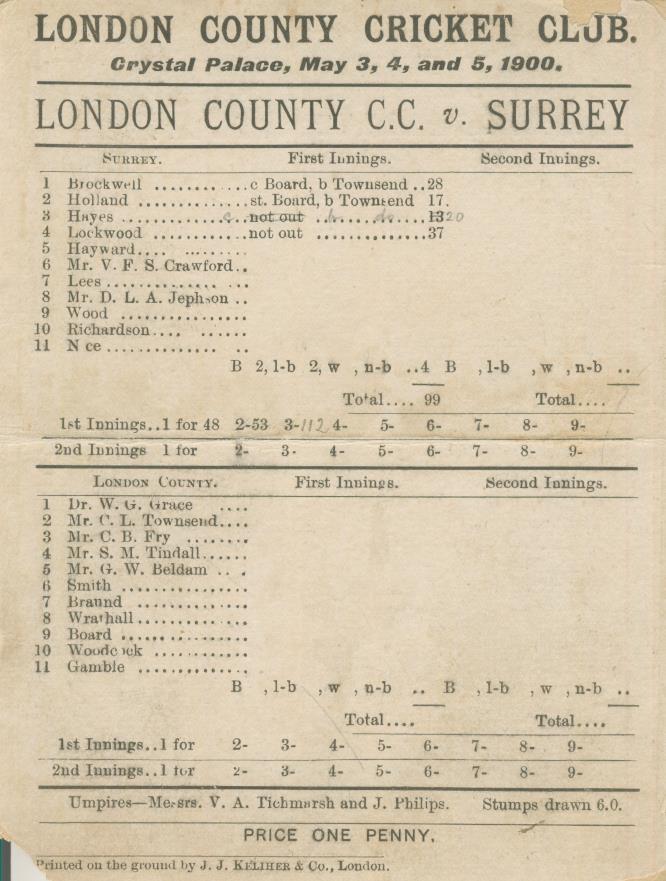 LONDON COUNTY CRICKET CLUB.
Crystal Palace, May 3, 4, and 5, 1900.
LONDON COUNTY C.C. v. SURREY
SURREY. First Innings. Second Innings.
1 Brockwell ............c Board, b Townsend ..28
2 Holland ...............st. Board, b Townsend 17.
3 Hayes ............c ..not out ..b....do........13 20
4 Lockwood ............not out ..............37
5 Hayward.... .........
6 Mr. V. F. S. Crawford..
7 Lees...............
8 Mr. D. L. A. Jephson ..
9 Wood ...............
10 Richardson.... ......
11 Nice ............... ..
B 2, l-b 2, w , n-b ..4 B , l-b , w , n-b ..
Total.... 99 Total....
1st Innings..1 for 48 2-53 3-112 4- 5- 6- 7- 8- 9-
2nd Innings 1 for 2- 3- 4- 5- 6- 7- 8- 9-
LONDON COUNTY. First Innings. Second Innings.
1 Dr. W. G. Grace ....
2 Mr. C. L. Townsend....
3 Mr. C. B. Fry ........
4 Mr. S. M. Tindall......
5 Mr. G. W. Beldam .. .
6 Smith ...............
7 Braund ............
8 Wrathall............
9 Board ...............
10 Woodcock ............
11 Gamble ............
B , l-b , w , n-b .. B , l-b , w , n-b ..
Total.... Total....
1st Innings..1 for 2- 3- 4- 5- 6- 7- 8- 9-
2nd Innings..1 for 2- 3- 4- 5- 6- 7- 8- 9-
Umpires—Messrs. V. A. Titchmarsh and J. Philips. Stumps drawn 6.0.
PRICE ONE PENNY.
Printed on the ground by J. J. KELIHER & Co., London.